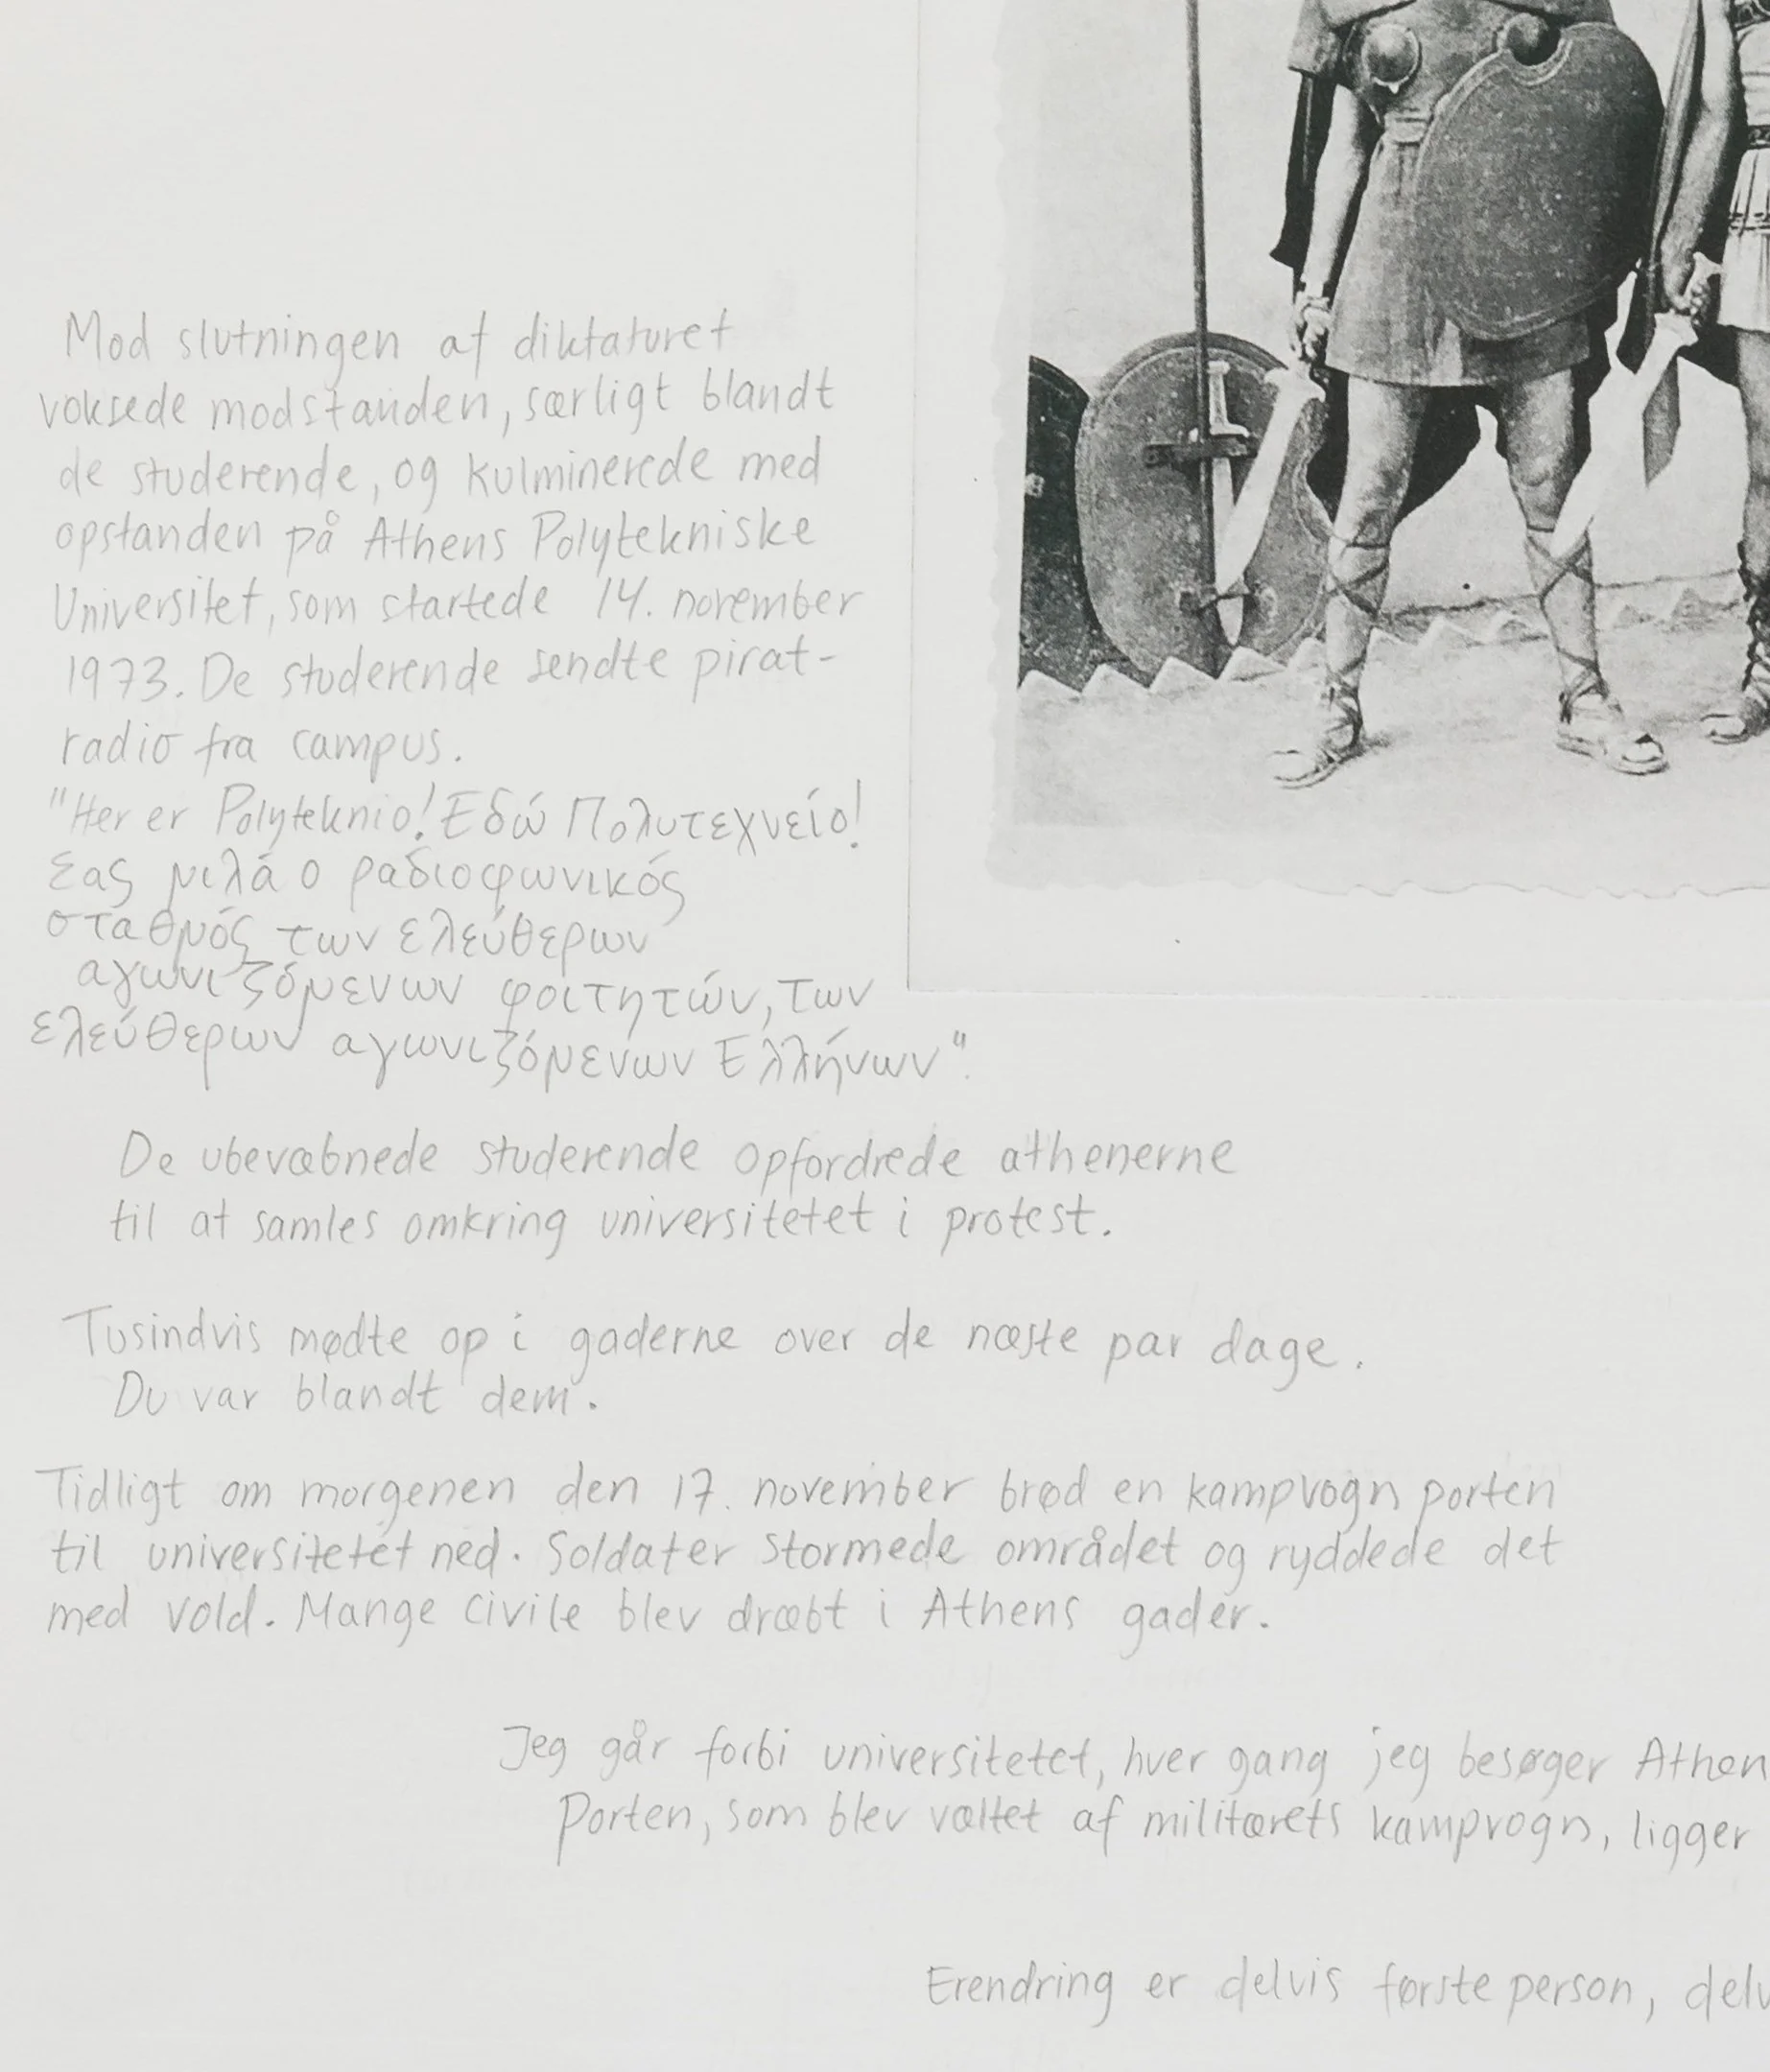 Mod slutningen af diktaturet
voksede modstanden, særligt blandt
de studerende, og kulminerede med
opstanden på Athens Polytekniske
Universitet, som startede 14. november
1973. De studerende sendte pirat-
radio fra campus.
"Her er Polyteknio! Εδώ Πολυτεχνείο!
Σας μιλά ο ραδιοφωνικός
σταθμός των ελεύθερων
αγωνιζόμενων φοιτητών, των
ελεύθερων αγωνιζόμενων Ελλήνων".
De ubevæbnede studerende opfordrede athenerne
til at samles omkring universitetet i protest.
Tusindvis mødte op i gaderne over de næste par dage.
Du var blandt dem.
Tidligt om morgenen den 17. november brød en kampvogn porten
til universitetet ned. Soldater stormede området og ryddede det
med vold. Mange civile blev dræbt i Athens gader.
Jeg går forbi universitetet, hver gang jeg besøger Athen
Porten, som blev væltet af militærets kampvogn, ligger
Erendring er delvis første person, delv